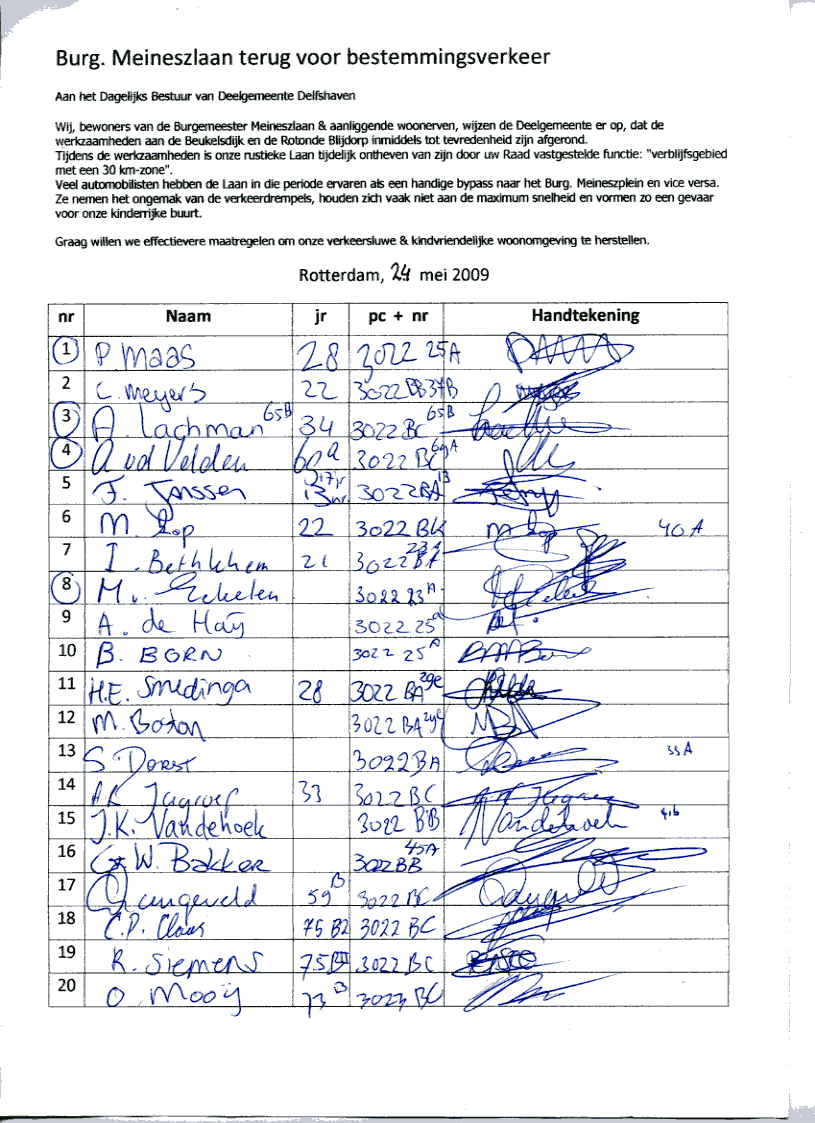 Burg. Meineszlaan terug voor bestemmingsverkeer
Aan het Dagelijks Bestuur van Deelgemeente Delfshaven
Wij, bewoners van de Burgemeester Meineszlaan & aanliggende woonerven, wijzen de Deelgemeente er op, dat de
werkzaamheden aan de Beukelsdijk en de Rotonde Blijdorp inmiddels tot tevredenheid zijn afgerond.
Tijdens de werkzaamheden is onze rustieke Laan tijdelijk ontheven van zijn door uw Raad vastgestelde functie: "verblijfsgebied
met een 30 km-zone".
Veel automobilisten hebben de Laan in die periode ervaren als een handige bypass naar het Burg. Meineszplein en vice versa.
Ze nemen het ongemak van de verkeerdrempels, houden zich vaak niet aan de maximum snelheid en vormen zo een gevaar
voor onze kinderrijke buurt.
Graag willen we effectievere maatregelen om onze verkeersluwe & kindvriendelijke woonomgeving te herstellen.
Rotterdam, 24 mei 2009
nr Naam jr pc + nr Handtekening
1 P Maas 28 3022 25A
2 C. Meyers 22 3022 BB 37B
3 A. Lachman 65B 34 3022 BC 65B
4 A vd Velden 60a 3022 BC 69A
5 F. Janssen 3022 BA 13
6 M. Lop 22 3022 BK M Lop 40 A
7 I. Bethlehem 21 3022 BA 23A
8 M v. Eekelen 3022 23A
9 A. de Haij 3022 25a
10 B. BORN 3022 25A
11 H.E. Smedinga 28 3022 BA 29e
12 M. Boton 3022 BA 29c
13 S. Dorst 3022 BA 33A
14 A.K. Jagroep 33 3022 BC
15 J.K. Vandehoek 3022 BB Vandehoek 41b
16 G. W. Bakker 3022 BB 45A
17 Langeveld 59B 3022 BC
18 C.P. Claas 75 B2 3022 BC
19 R. Siemens 75B 3022 BC
20 O Mooij 73B 3023 BC